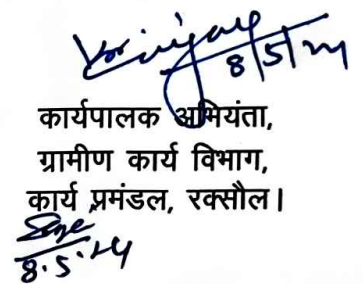 8/5/24
कार्यपालक अभियंता,
ग्रामीण कार्य विभाग,
कार्य प्रमंडल, रक्सौल।
8.5.24